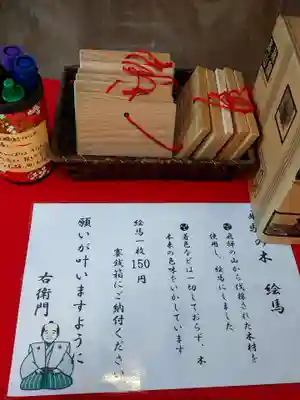 の木 絵馬
飛騨の山から伐採された木材を
使用し、絵馬にしました
着色などは一切しておらず、木
本来の色味をいかしています
絵馬一枚150円
賽銭箱にご納付ください
願いが叶いますように
右衛門